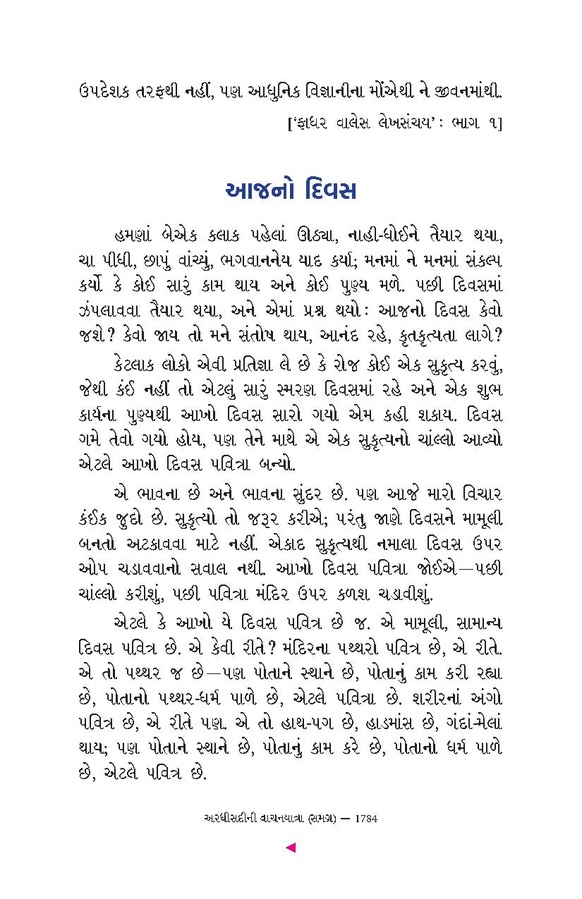 ઉપદેશક તરફથી નહીં, પણ આધુનિક વિજ્ઞાનીના મોંએથી ને જીવનમાંથી.
[‘ફાધર વાલેસ લેખસંચય’ : ભાગ ૧]
આજનો દિવસ
હમણાં બેએક કલાક પહેલાં ઊઠ્યા, નાહી-ધોઈને તૈયાર થયા,
ચા પીધી, છાપું વાંચ્યું, ભગવાનનેય યાદ કર્યા; મનમાં ને મનમાં સંકલ્પ
કર્યો કે કોઈ સારું કામ થાય અને કોઈ પુણ્ય મળે. પછી દિવસમાં
ઝંપલાવવા તૈયાર થયા, અને એમાં પ્રશ્ન થયો : આજનો દિવસ કેવો
જશે? કેવો જાય તો મને સંતોષ થાય, આનંદ રહે, કૃતકૃત્યતા લાગે?
કેટલાક લોકો એવી પ્રતિજ્ઞા લે છે કે રોજ કોઈ એક સુકૃત્ય કરવું,
જેથી કંઈ નહીં તો એટલું સારું સ્મરણ દિવસમાં રહે અને એક શુભ
કાર્યના પુણ્યથી આખો દિવસ સારો ગયો એમ કહી શકાય. દિવસ
ગમે તેવો ગયો હોય, પણ તેને માથે એ એક સુકૃત્યનો ચાંલ્લો આવ્યો
એટલે આખો દિવસ પવિત્રા બન્યો.
એ ભાવના છે અને ભાવના સુંદર છે. પણ આજે મારો વિચાર
કંઈક જુદો છે. સુકૃત્યો તો જરૂર કરીએ; પરંતુ જાણે દિવસને મામૂલી
બનતો અટકાવવા માટે નહીં. એકાદ સુકૃત્યથી નમાલા દિવસ ઉપર
ઓપ ચડાવવાનો સવાલ નથી. આખો દિવસ પવિત્રા જોઈએ—પછી
ચાંલ્લો કરીશું, પછી પવિત્રા મંદિર ઉપર કળશ ચડાવીશું.
એટલે કે આખો યે દિવસ પવિત્ર છે જ. એ મામૂલી, સામાન્ય
દિવસ પવિત્ર છે. એ કેવી રીતે? મંદિરના પથ્થરો પવિત્ર છે, એ રીતે.
એ તો પથ્થર જ છે—પણ પોતાને સ્થાને છે, પોતાનું કામ કરી રહ્યા
છે, પોતાનો પથ્થર-ધર્મ પાળે છે, એટલે પવિત્રા છે. શરીરનાં અંગો
પવિત્ર છે, એ રીતે પણ. એ તો હાથ-પગ છે, હાડમાંસ છે, ગંદાં-મેલાં
થાય; પણ પોતાને સ્થાને છે, પોતાનું કામ કરે છે, પોતાનો ધર્મ પાળે
છે, એટલે પવિત્ર છે.
અરધીસદીની વાચનયાત્રા (સમગ્ર) — 1784